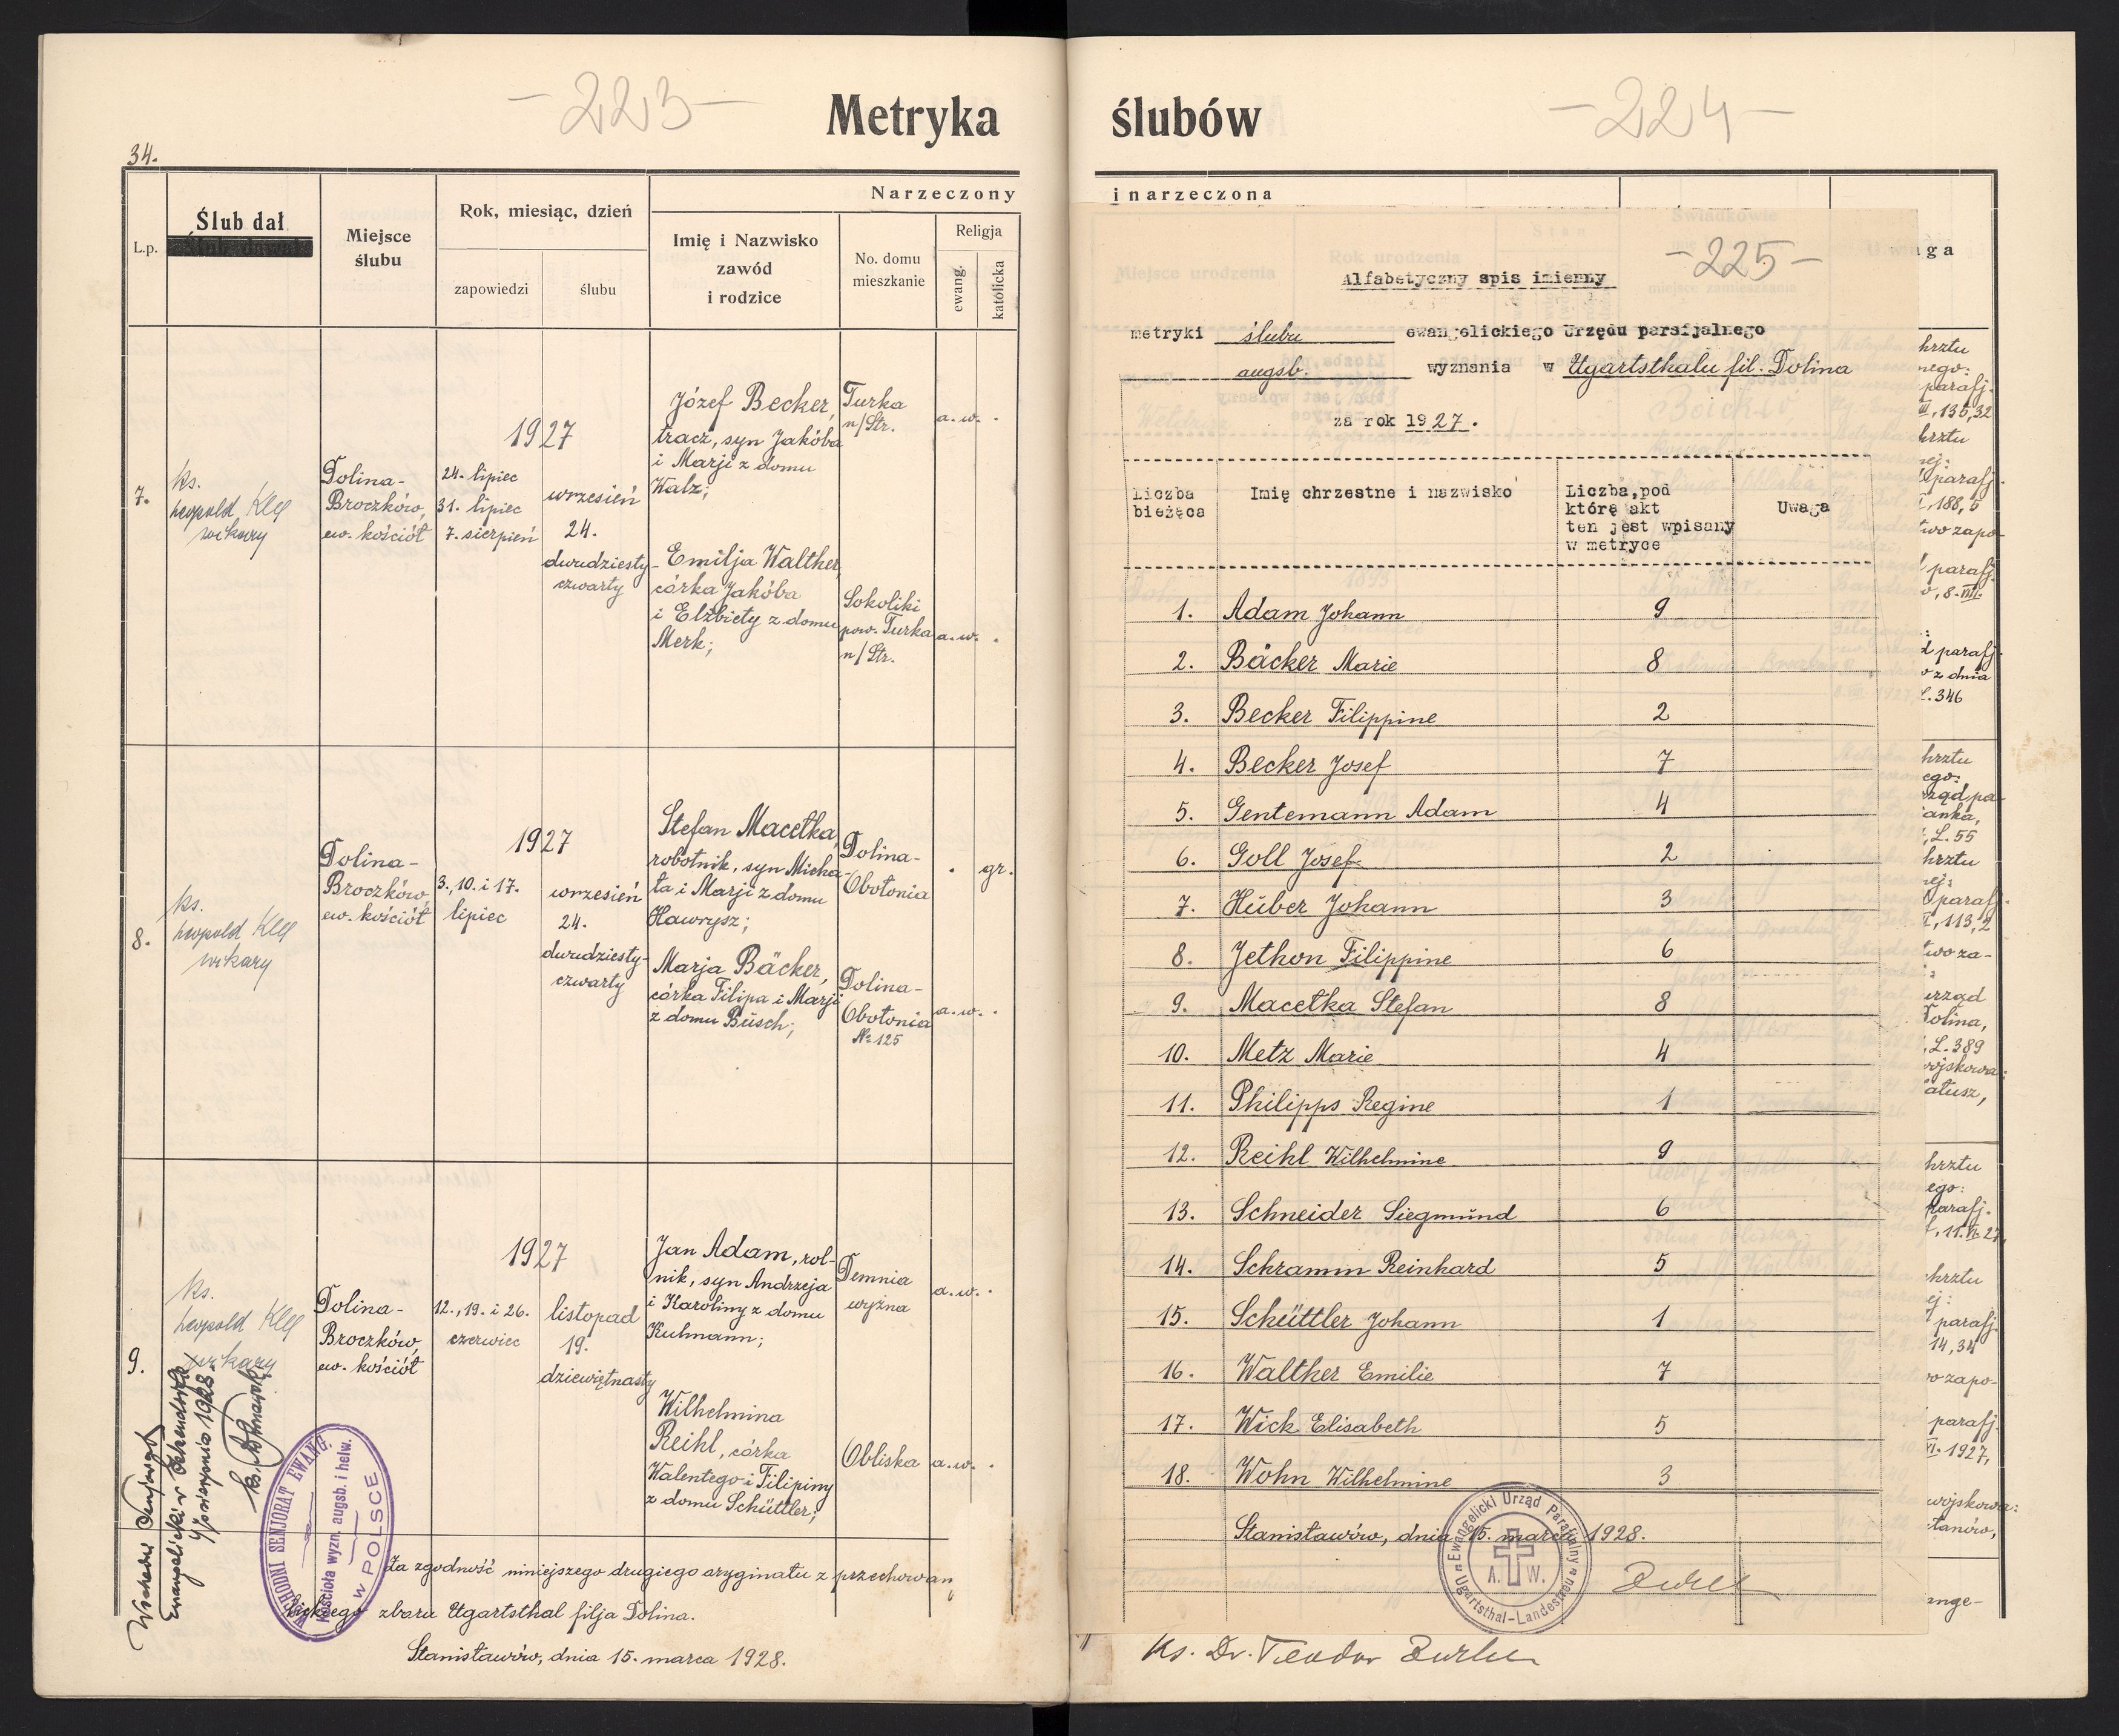 -223-
Metryka
34.
L.p.
Ślub dał
Miejsce
ślubu
Rok, miesiąc, dzień
zapowiedzi
ślubu
Narzeczony
Imię i Nazwisko
zawód
i rodzice
No. domu
mieszkanie
Religja
ewang.
katolicka
7.
ks.
Leopold Kley
wikary
Dolina-
Broczków,
ew. kościół
1927
24. lipiec
31. lipiec
7. sierpień
wrzesień
24.
dwudziesty-
czwarty
Józef Becker,
tracz, syn Jakóba
i Marji z domu
Walz;
Turka
n/Str.
a. w. .
Emilja Walther,
córka Jakóba
i Elżbiety z domu
Merk;
Sokoliki
pow. Turka
n/Str.
a. w. .
8.
ks.
Leopold Kley
wikary
Dolina-
Broczków,
ew. kościół
1927
3., 10. i 17.
lipiec
wrzesień
24.
dwudziesty-
czwarty
Stefan Macełka,
robotnik, syn Micha-
ła i Marji z domu
Hawrysz;
Dolina-
Obołonia
. gr.
Marja Bäcker,
córka Filipa i Marji
z domu Busch;
Dolina-
Obołonia
№ 125
a. w. .
9.
ks.
Leopold Kley
wikary
Dolina-
Broczków,
ew. kościół
1927
12., 19. i 26.
czerwiec
listopad
19.
dziewiętnasty
Jan Adam, rol-
nik, syn Andrzeja
i Karoliny z domu
Kuhmann;
Demnia
wyżna
a. w. .
Wilhelmina
Reihl, córka
Walentego i Filipiny
z domu Schüttler;
Obliska
a. w. .
Wschodni Senjorat
Ewangelicki
sierpnia 1928.
WSCHODNI SENJORAT EWANG.
Kościoła wyzn. augsb. i helw.
W POLSCE
Za zgodność niniejszego drugiego oryginału z przechowan
zboru Ugartsthal filja Dolina.
Stanisławów, dnia 15. marca 1928.
ślubów
-224-
i narzeczona
Uwaga
-225-
Alfabetyczny spis imienny
metryki ślubu ewangelickiego Urzędu parafjalnego
augsb. wyznania w Ugartsthalu fil. Dolina
za rok 1927.
Liczba
bieżąca
Imię chrzestne i nazwisko
Liczba, pod
którą akt
ten jest wpisany
w metryce
Uwaga
1. Adam Johann 9
2. Bäcker Marie 8
3. Becker Filippine 2
4. Becker Josef 7
5. Gentemann Adam 4
6. Goll Josef 2
7. Huber Johann 3
8. Jethon Filippine 6
9. Macełka Stefan 8
10. Metz Marie 4
11. Philipps Regine 1
12. Reihl Wilhelmine 9
13. Schneider Siegmund 6
14. Schramm Reinhard 5
15. Schüttler Johann 1
16. Walther Emilie 7
17. Wick Elisabeth 5
18. Wohn Wilhelmine 3
Stanisławów, dnia 15. marca 1928.
Ewangelicki Urząd Parafjalny
A. W.
Ugartsthal-Landestreu
Zöckler
hrztu
nego:
parafj.
III, 135, 32
hrztu
nej:
parafj.
, 188, 5
two zapo-
parafj.
, 8. VIII.
d parafj.
z dnia
L. 346
hrztu
ego:
rząd pa-
anka,
, L. 55
hrztu
nej:
parafj.
, 113, 2
two za-
urząd
Dolina,
, L. 389
wojskowa:
atusz,
hrztu
ego:
parafj.
, 11. VI. 27,
hrztu
ej:
parafj.
14, 34
wo zapo-
parafj.
VI. 1927,
wojskowa:
tanów,
ange-
Ks. Dr. Teodor Zöckler